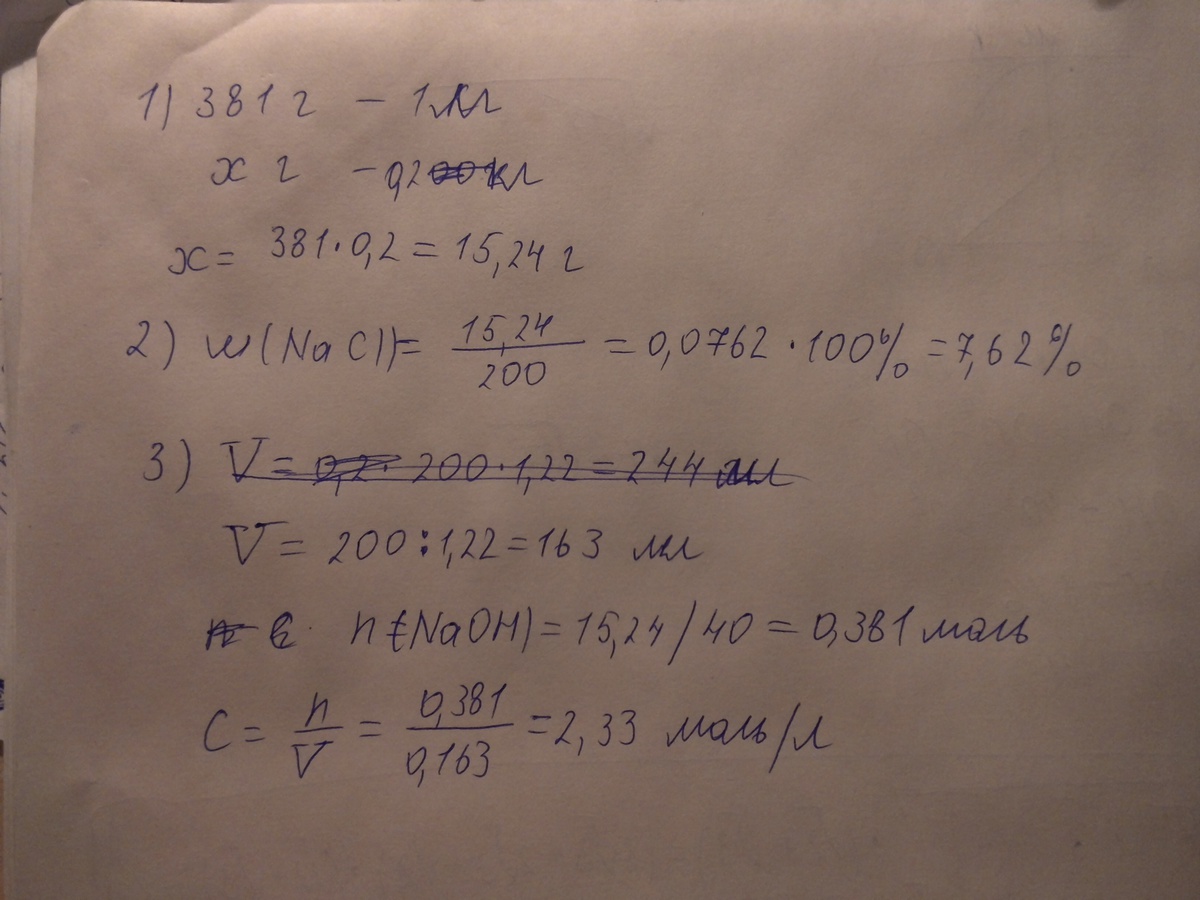 1) 381 г – 1 кг
x г – 0,2 кг
x = 381·0,2 = 15,24 г
2) w(NaCl) = 15,24/200 = 0,0762 · 100% = 7,62%
3) V = 200·1,22 = 244 мл
V = 200 : 1,22 = 163 мл
n(NaOH) = 15,24/40 = 0,381 моль
C = n/V = 0,381/0,163 = 2,33 моль/л